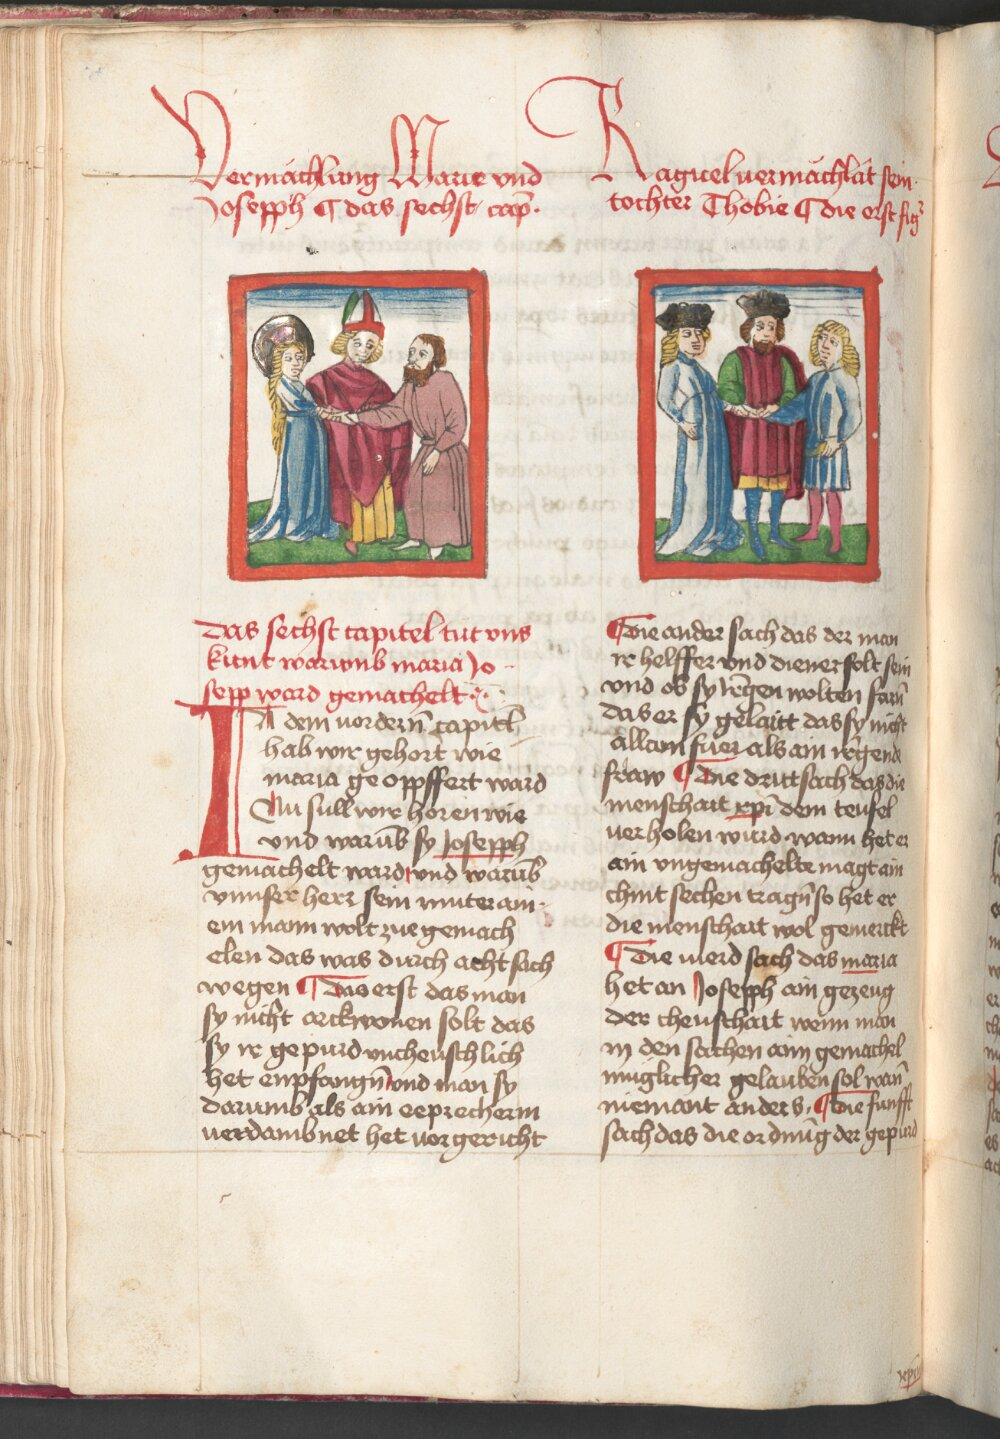 Vermächlung Marie vnd
Joseph ¶ das sechst cap̄.
Raguel uermächlät sein
tochter Thobie ¶ die erst fig
Das sechst capitel tut vns
kunt warumb maria Jo-
sepp ward gemachelt
In dem uordern̄ capitl̄
hab wir gehort wie
maria geopffert ward
Nu sull wir horen wie
vnd warūb sy Josepph
gemachelt ward vnd warūb
vnnser herr sein muter ain-
em mann wolt zue gemach
elen das was durch acht sach
wegen ¶ Das erst das man
sy nicht arckwonen solt das
sy ir gepurd vncheuschlich
het enpfangn̄ vnd man sy
darumb als ain eeprecherin
uerdambnet het uor gericht
¶ Die ander sach das der man
ir helffer vnd diener solt sein
vnd ob sy irgen wolten farn̄
das er sy gelaitt das sy nicht
allain fuer als ain irgende
fraw ¶ Die dritt sach das die
menschait xp̄i dem teufel
uerholen wurd wann het er
ain vngemachelte magt ain
chint sechen tragn̄ so het er
die menschait wol gemerckt
¶ Die uierd sach das maria
het an Josepph ain gezeug
der cheuschait wenn man
in den sachen aim gemachel
muglicher gelauben sol wan̄
niemant anders. ¶ Die funfft
sach das die ordnūg der gepurd